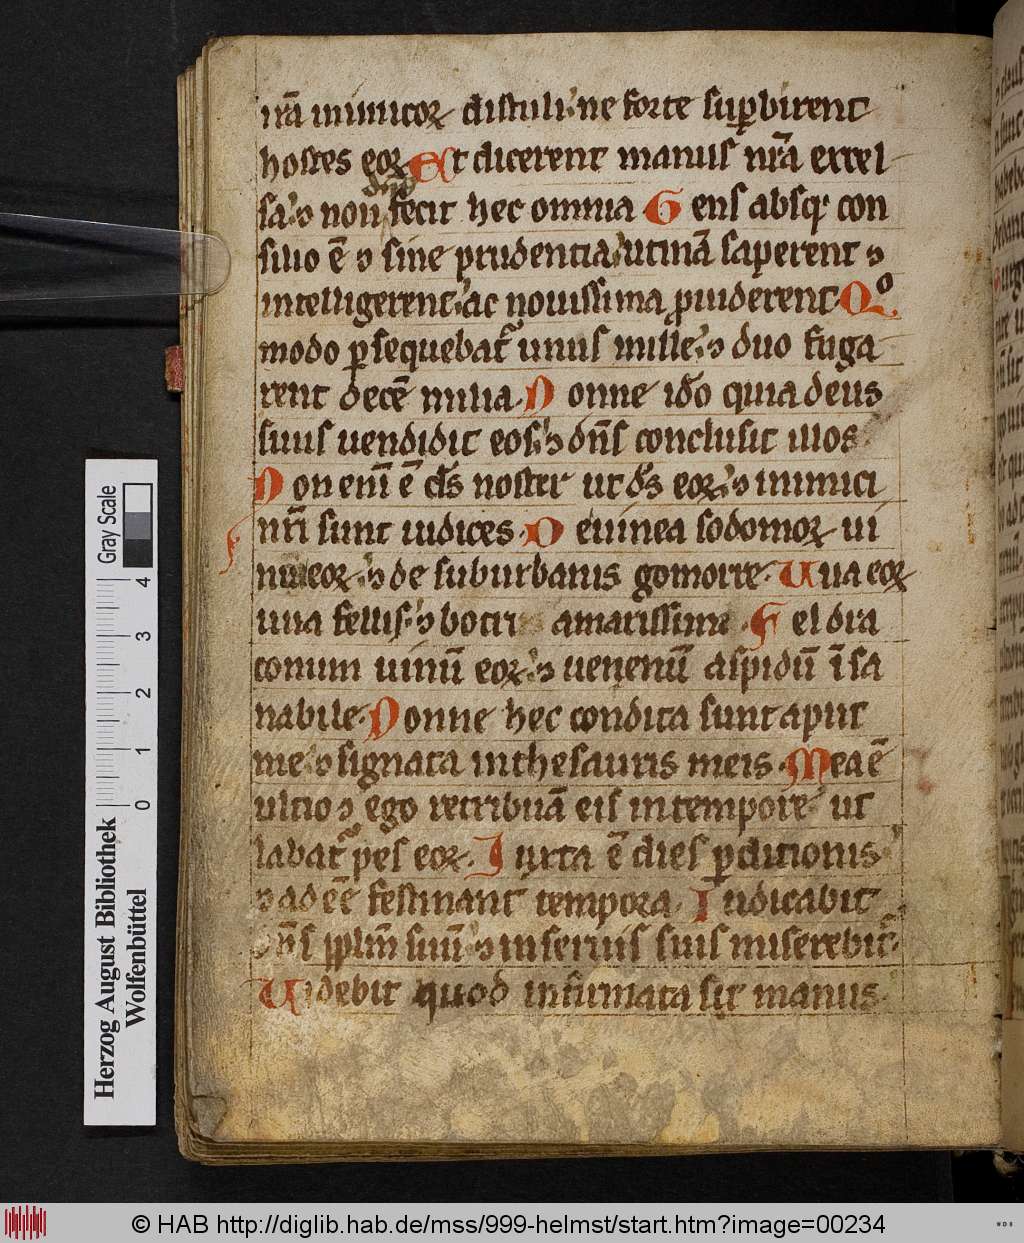 irã inimicoꝝ distuli ne forte suꝑbirent
hostes eoꝝ Et dicerent manus nr̃a excel
dñs
sa ⁊ non fecit hec omnia Gens absqꝫ con
silio ẽ ⁊ sine prudentia utinã saperent ⁊
intelligerent ac nouissima ꝓuiderent Qͦ
modo ꝑsequebat᷑ unus mille ⁊ duo fuga
rent decẽ milia Nonne idõ quia deus
suus uendidit eos ⁊ dñs conclusit illos
Non enĩ ẽ ds̃ noster ut ds̃ eoꝝ ⁊ inimici
nr̃i sunt iudices De uinea sodomoꝝ ui
nea eoꝝ ⁊ de suburbanis gomorre Uua eoꝝ
uua fellis ⁊ botri amarissimi Fel dra
conum uinũ eoꝝ ⁊ uenenũ aspidũ ĩsa
nabile Nonne hec condita sunt aput
me ⁊ signata in thesauris meis Mea ẽ
ultio ⁊ ego retribuã eis in tempore ut
labat᷑ pes eoꝝ Iuxta ẽ dies ꝑditionis
⁊ adeẽ festinant tempora Iudicabit
dñs pp̃lm suũ ⁊ in seruis suis miserebit᷑
Uidebit quod infirmata sit manus
Herzog August Bibliothek
Wolfenbüttel
0 1 2 3 4
Gray Scale
© HAB http://diglib.hab.de/mss/999-helmst/start.htm?image=00234
WDB